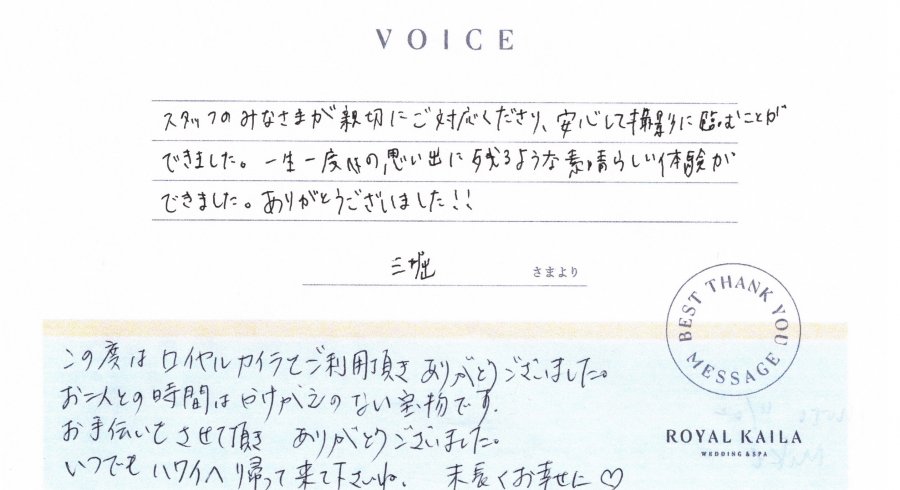 VOICE
スタッフのみなさまが親切にご対応くださり、安心して撮影に臨むことが
できました。一生一度の思い出に残るような素晴らしい体験が
できました。ありがとうございました!!
三堀 さまより
BEST THANK YOU MESSAGE
この度はロイヤルカイラをご利用頂きありがとうございました。
お二人との時間はかけがえのない宝物です。
お手伝いをさせて頂き ありがとうございました。
いつでもハワイへ帰って来て下さいね。 末長くお幸せに♡
ROYAL KAILA
WEDDING & SPA